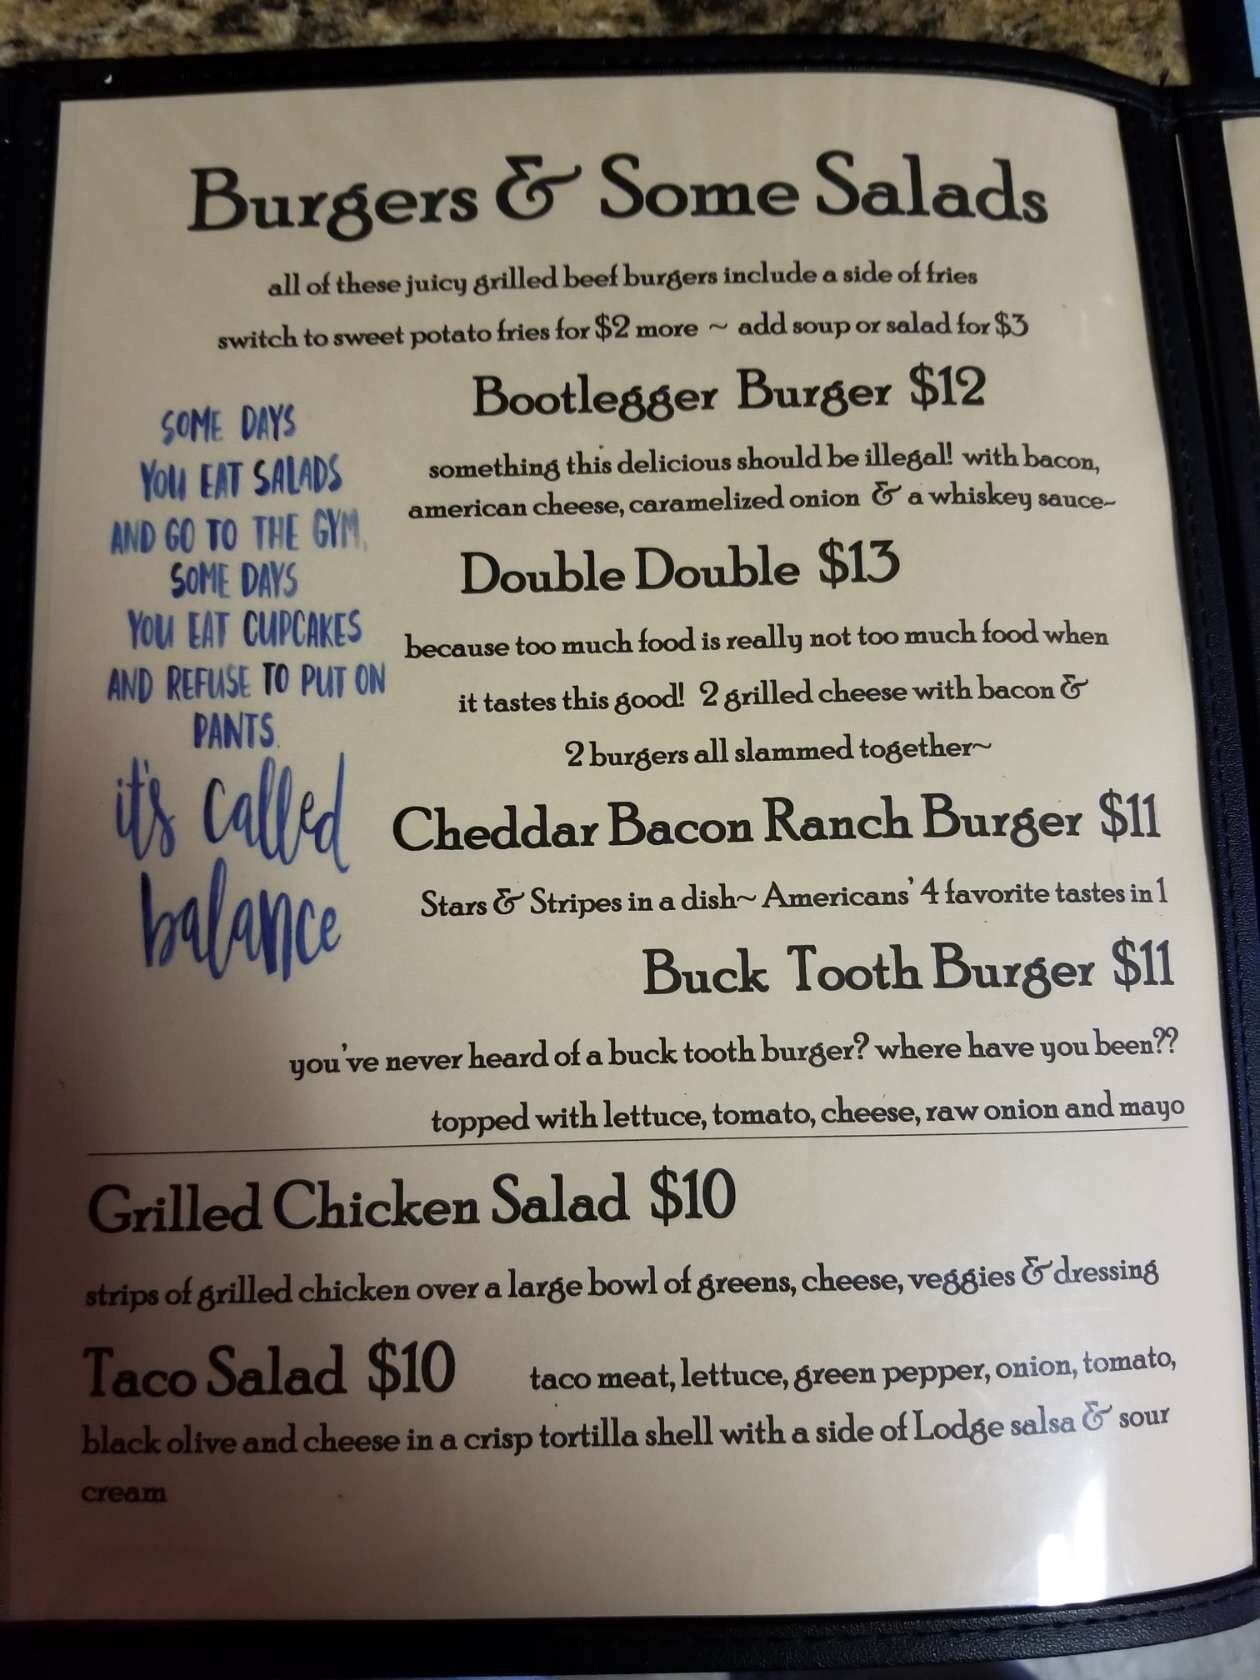 Burgers & Some Salads
all of these juicy grilled beef burgers include a side of fries
switch to sweet potato fries for $2 more ~ add soup or salad for $3
Bootlegger Burger $12
something this delicious should be illegal! with bacon,
american cheese, caramelized onion & a whiskey sauce~
Double Double $13
because too much food is really not too much food when
it tastes this good! 2 grilled cheese with bacon &
2 burgers all slammed together~
Cheddar Bacon Ranch Burger $11
Stars & Stripes in a dish~ Americans' 4 favorite tastes in 1
Buck Tooth Burger $11
you've never heard of a buck tooth burger? where have you been??
topped with lettuce, tomato, cheese, raw onion and mayo
SOME DAYS
YOU EAT SALADS
AND GO TO THE GYM.
SOME DAYS
YOU EAT CUPCAKES
AND REFUSE TO PUT ON
PANTS.
it's called
balance
Grilled Chicken Salad $10
strips of grilled chicken over a large bowl of greens, cheese, veggies & dressing
Taco Salad $10 taco meat, lettuce, green pepper, onion, tomato,
black olive and cheese in a crisp tortilla shell with a side of Lodge salsa & sour
cream